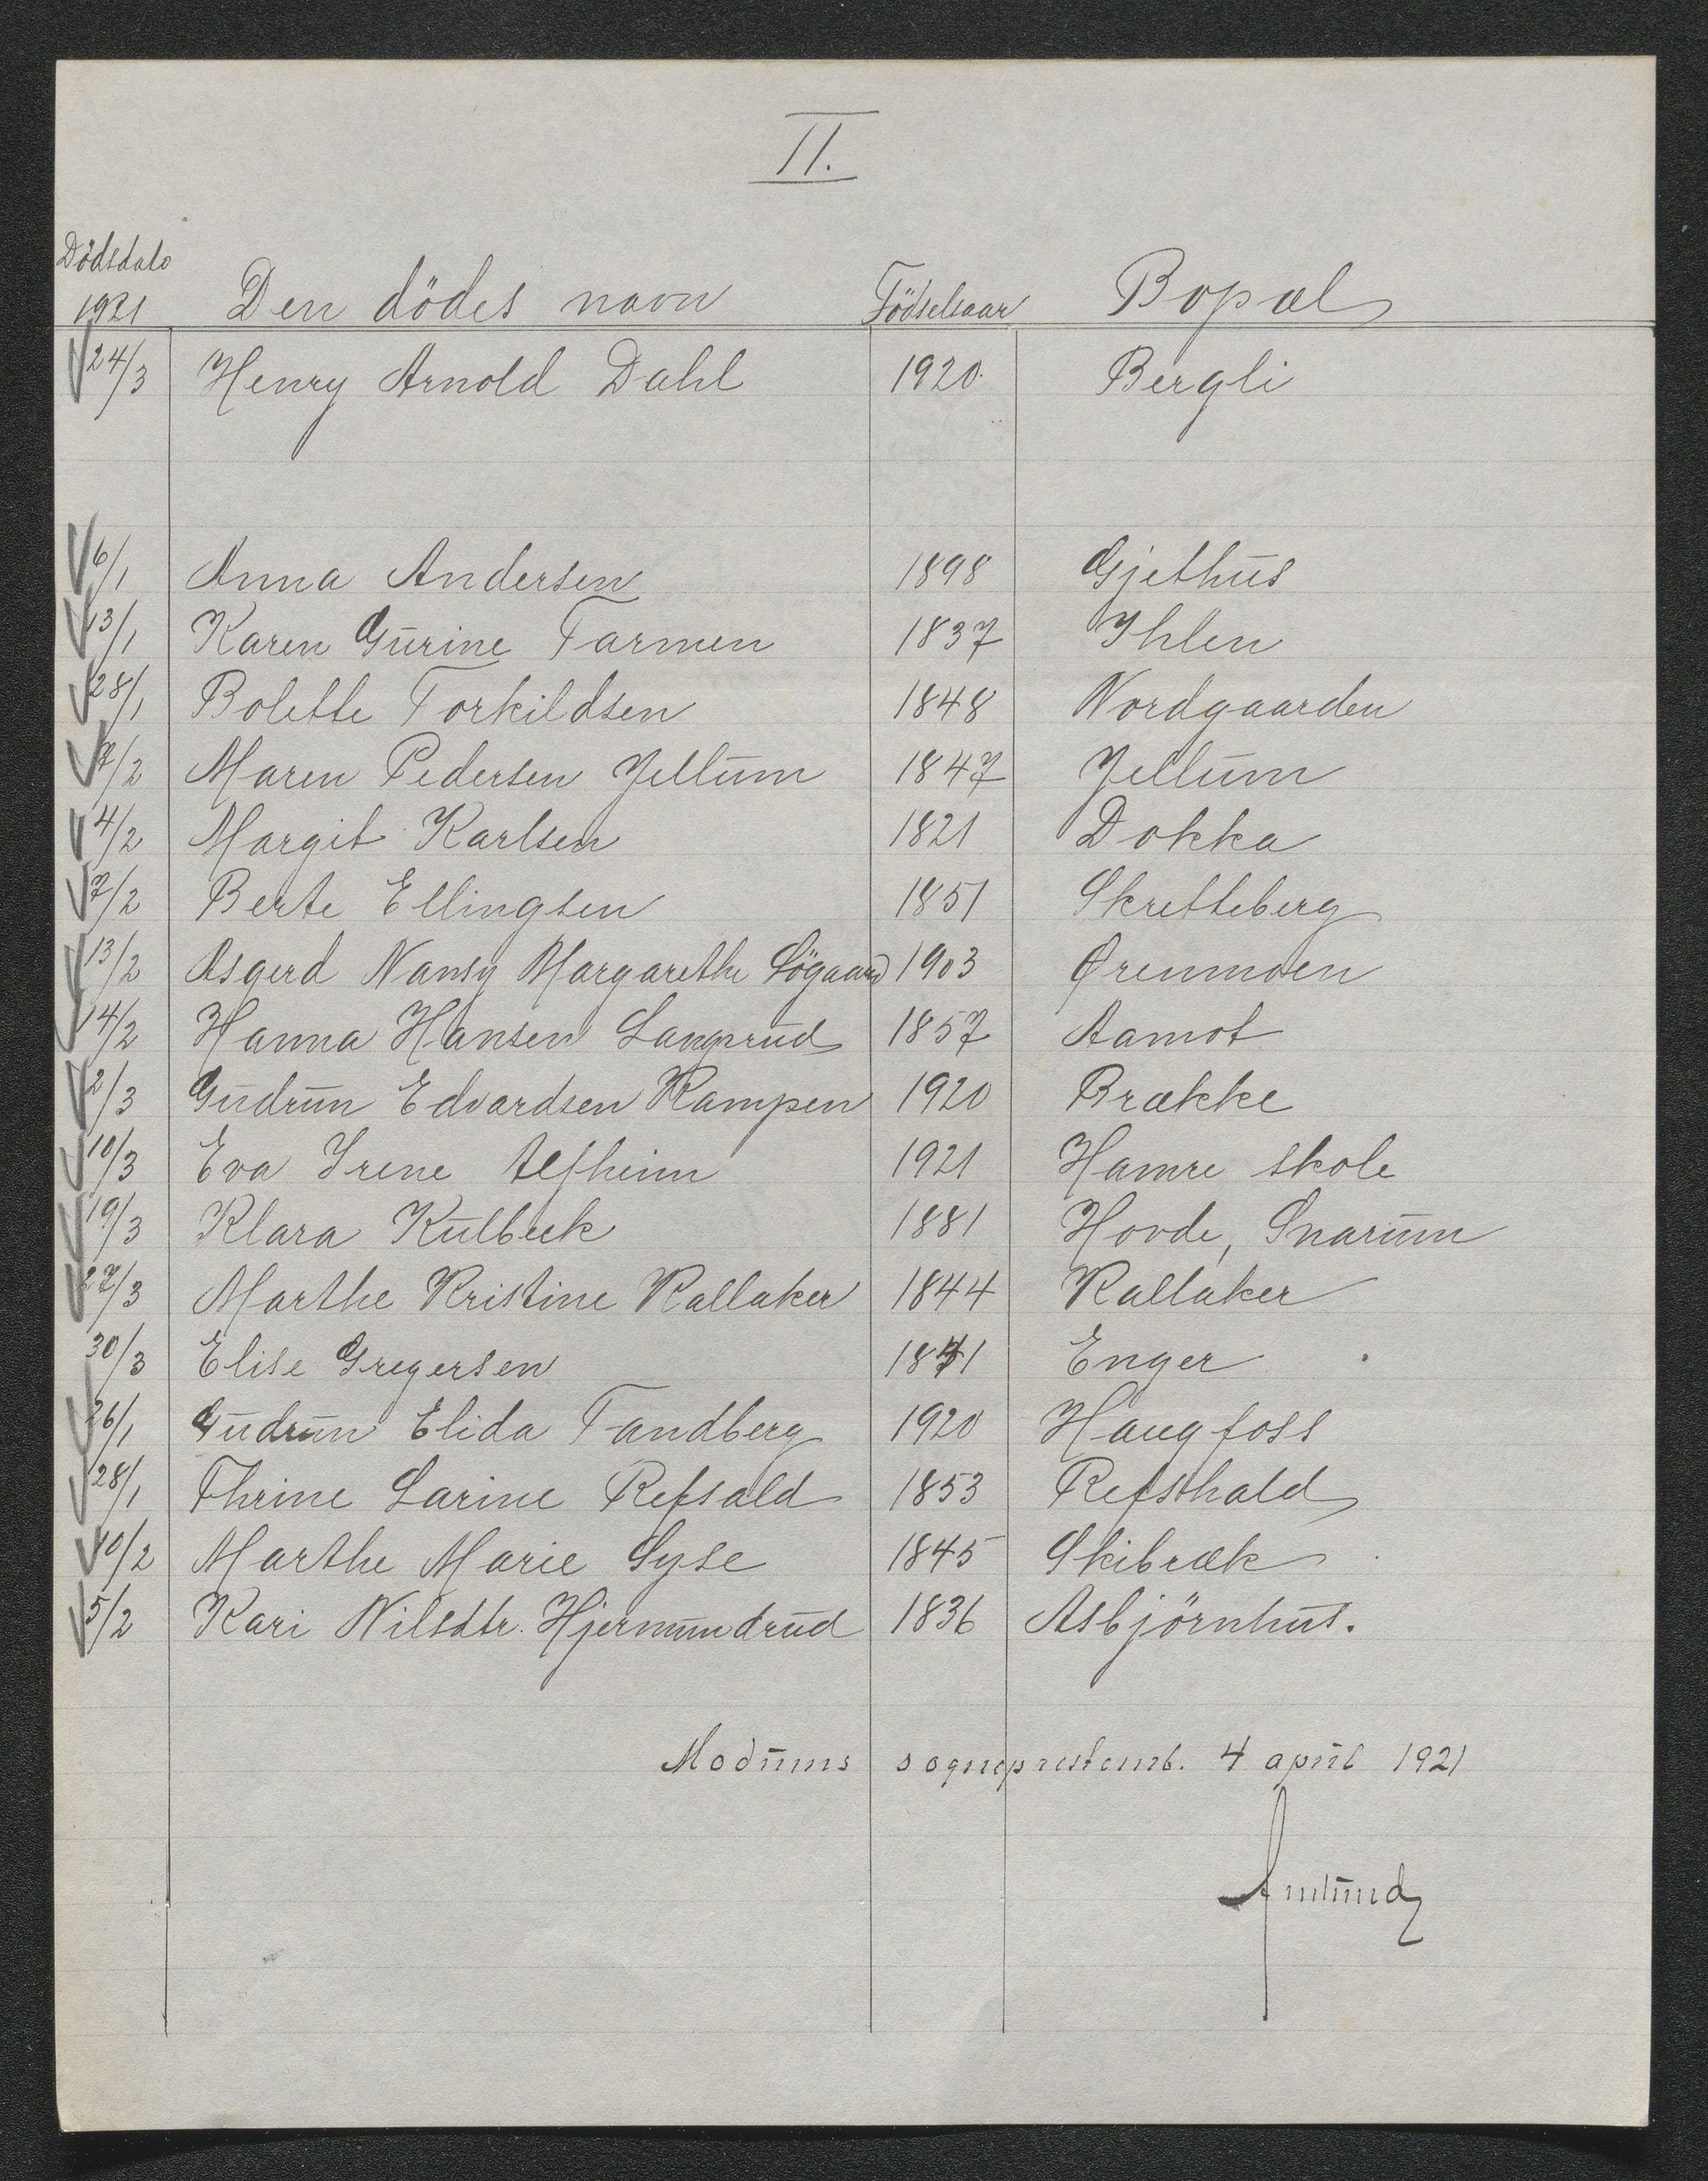 II.
Dödsdato
1921 Den dödes navn Födselsaar Bopæl
24/3 Henry Arnold Dahl 1920. Bergli
6/1 Anna Andersen 1898 Gjethus
13/1 Karen Gurine Tarmen 1837 Ihlen
28/1 Bolette Torkildsen 1848 Nordgaarden
7/2 Maren Pedersen Jellum 1847 Jellum
4/2 Margit Karlsen 1821 Dokka
7/2 Berte Ellingsen 1851 Skretteberg
13/2 Asgerd Nansy Margarethe Sögaard 1903 Ørenmoen
14/2 Hanna Hansen Langrud 1857 Aamot
2/3 Gudrun Edvardsen Kampen 1920 Brække
10/3 Eva Irene Alfheim 1921 Hamre skole
19/3 Klara Kulbeck 1881 Hovde, Snarum
27/3 Marthe Kristine Kallaker 1844 Kallaker
30/3 Elise Gregersen Enger
26/1 Gudrun Elida Tandberg 1920 Haugfoss
28/1 Thrine Larine Refsald 1853 Refsthald
10/2 Marthe Marie Syse 1845 Skibræk
5/2 Kari Nilsdtr. Hjermundrud 1836 Asbjörnhus.
Modums sogneprestemb. 4 april 1921